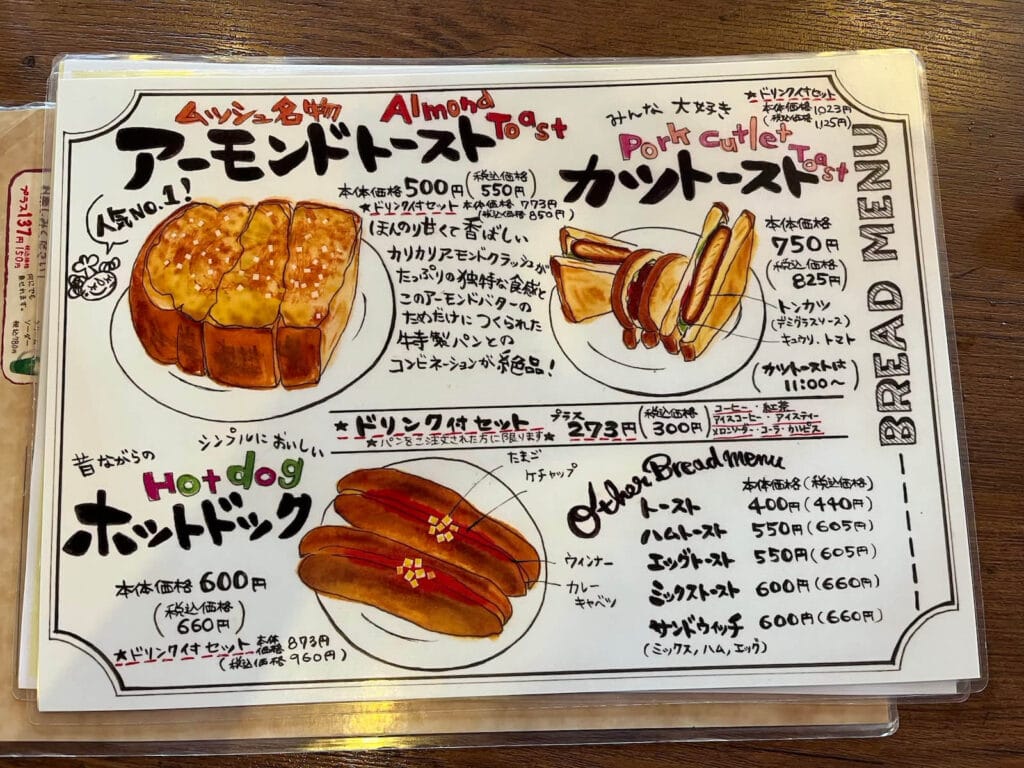 ムッシュ名物 Almond Toast
アーモンドトースト
人気NO.1!
本体価格 500円 (税込価格 550円)
★ドリンク付セット 本体価格 773円
(税込価格 850円)
ほんのり甘くて香ばしい
カリカリアーモンドクラッシュが
たっぷりの独特な食感と
このアーモンドバターの
ためだけにつくられた
特製パンとの
コンビネーションが絶品!
みんな大好き
Pork Cutlet Toast
カツトースト
★ドリンク付セット
本体価格 1023円
(税込価格 1125円)
本体価格
750円
(税込価格
825円)
トンカツ
(デミグラスソース)
キュウリ、トマト
(カツトーストは
11:00〜)
BREAD MENU
★ドリンク付セット プラス 273円 (税込価格 300円)
★パンをご注文された方に限ります★
コーヒー・紅茶
アイスコーヒー・アイスティー
メロンソーダー・コーラ・カルピス
昔ながらの シンプルにおいしい
Hot dog
ホットドック
本体価格 600円
(税込価格
660円)
★ドリンク付セット 本体価格 873円
(税込価格 960円)
たまご
ケチャップ
ウィンナー
カレー
キャベツ
Other Bread menu
本体価格(税込価格)
トースト 400円(440円)
ハムトースト 550円(605円)
エッグトースト 550円(605円)
ミックストースト 600円(660円)
サンドウィッチ 600円(660円)
(ミックス,ハム,エッグ)
お楽しみください!
プラス137円 税込150円